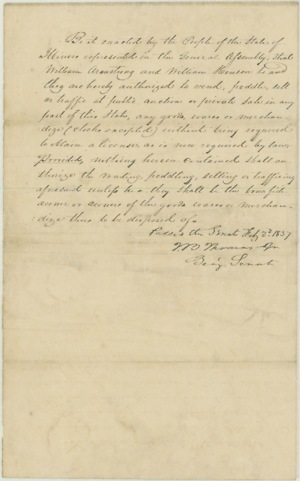 Be it enacted by the People of the State of
Illinois represented in the General Assembly, That
William Armstrong and William Henson be and
they are hereby authorized to vend, peddle, sell
or traffic at public auction or private sale in any
part of this State, any goods, wares or merchan-
dize (clocks excepted) without being required
to obtain a license as is now required by law
Provided, nothing herein contained shall au-
thorize the vending, peddling, selling or trafficing
aforesaid unless he or they shall be the bona fide
owner or owners of the goods wares or merchan-
dize thus to be disposed of.
Passed the Senate Feby 2d 1837